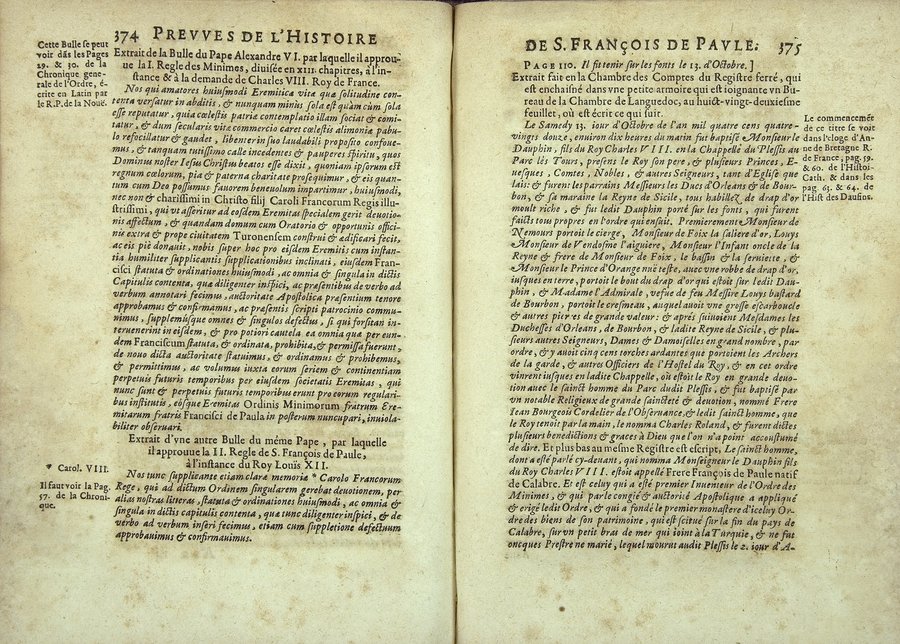 374 PREVVES DE L'HISTOIRE
Cette Bulle se peut
voir dãs les Pages
29. & 30. de la
Chronique gene-
rale de l'Ordre, é-
crite en Latin par
le R.P. de la Nouë.
Extrait de la Bulle du Pape Alexandre VI. par laquelle il approu-
ue la I. Regle des Minimes, diuisée en XIII. chapitres, à l'in-
stance & à la demande de Charles VIII. Roy de France.
Nos qui amatores huiusmodi Eremitica vita qua solitudine con-
tenta versatur in abditis, & nunquam minus sola est quàm cum sola
esse reputatur, quia cœlestis patria contemplatio illam sociat & comi-
tatur, & dum secularis vita commercio caret cœlesti alimonia pabu-
lo refocillatur & gaudet, libenter in suo laudabili proposito confoue-
mus, & tanquam tutissimo calle incedentes & pauperes spiritu, quos
Dominus noster Iesus Christus beatos esse dixit, quoniam ipsorum est
regnum cœlorum, pia & paterna charitate prosequimur, & eis quan-
tum cum Deo possumus fauorem beneuolum impartimur, huiusmodi,
nec non & charissimi in Christo filij Caroli Francorum Regis illu-
strissimi, qui vt asseritur ad eosdem Eremitas specialem gerit deuotio-
nis affectum, & quandam domum cum Oratorio & opportunis offici-
nis extra & prope ciuitatem Turonensem construi & adificari fecit,
ac eis piè donauit, nobis super hoc pro eisdem Eremitis cum instan-
tia humiliter supplicantis supplicationibus inclinati, eiusdem Fran-
cisci statuta & ordinationes huiusmodi, ac omnia & singula in dictis
Capitulis contenta, que diligenter inspici, ac præsentibus de verbo ad
verbum annotari fecimus, auctoritate Apostolica præsentium tenore
approbamus & confirmamus, ac præsentis scripti patrocinio commu-
nimus, supplemusque omnes & singulos defectus, si qui forsitan in-
teruenerint in eisdem, & pro potiori cautela ea omnia que per eun-
dem Franciscum statuta, & ordinata, prohibita, & permissa fuerunt,
de nouo dicta auctoritate statuimus, & ordinamus & prohibemus,
& permittimus, ac volumus iuxta eorum seriem & continentiam
perpetuis futuris temporibus per eiusdem societatis Eremitas, qui
nunc sunt & perpetuis futuris temporibus erunt pro eorum regulari-
bus institutis, eosque Eremitas Ordinis Minimorum fratrum Ere-
mitarum fratris Francisci de Paula in posterum nuncupari, inuiola-
biliter obseruari.
Extrait d'vne autre Bulle du même Pape, par laquelle
il approuue la II. Regle de S. François de Paule,
à l'instance du Roy Louis XII.
* Carol. VIII.
Il faut voir la Pag.
57. de la Chroni-
que.
Nos tunc supplicante etiam claræ memoria * Carolo Francorum
Rege, qui ad dictum Ordinem singularem gerebat deuotionem, per
alias nostras literas, statuta & ordinationes huiusmodi, ac omnia &
singula in dictis capitulis contenta, que tunc diligenter inspici, & de
verbo ad verbum inseri fecimus, etiam cum suppletione defectuum
approbauimus & confirmauimus.
DE S. FRANÇOIS DE PAVLE. 375
PAGE 110. Il fit tenir sur les fonts le 13. d'Octobre.]
Extrait fait en la Chambre des Comptes du Registre ferré, qui
est enchaisné dans vne petite armoire qui est ioignante vn Bu-
reau de la Chambre de Languedoc, au huict-vingt-deuxiesme
feuillet, où est écrit ce qui suit.
Le commencemẽt
de ce titre se voit
dans l'eloge d'An-
ne de Bretagne R.
de France, pag. 59.
& 60. de l'Histoi-
Cath. & dans les
pag. 63. & 64. de
l'Hist des Daufins.
Le Samedy 13. iour d'Octobre de l'an mil quatre cens quatre-
vingts douze, enuiron dix heures du matin fut baptisé Monsieur le
Dauphin, fils du Roy Charles VIII. en la Chappelle du Plessis au
Parc lès Tours, presens le Roy son pere, & plusieurs Princes, E-
uesques, Comtes, Nobles, & autres Seigneurs, tant d'Eglise que
lais: & furent les parrains Messieurs les Ducs d'Orleans & de Bour-
bon, & sa maraine la Reyne de Sicile, tous habillez de drap d'or
moult riche, & fut ledit Dauphin porté sur les fonts, qui furent
faicts tous propres en l'ordre qui ensuit. Premierement Monsieur de
Nemours portoit le cierge, Monsieur de Foix la saliere d'or, Louys
Monsieur de Vendosme l'aiguiere, Monsieur l'Infant oncle de la
Reyne & frere de Monsieur de Foix, le bassin & la seruiette, &
Monsieur le Prince d'Orange nuë teste, auec vne robbe de drap d'or,
iusques en terre, portoit le bout du drap d'or qui estoit sur ledit Dau-
phin, & Madame l'Admirale, vefue de feu Messire Louys bastard
de Bourbon, portoit le cresmeau, auquel auoit vne grosse escarboucle
& autres pierres de grande valeur: & aprés suiuoient Mesdames les
Duchesses d'Orleans, de Bourbon, & ladite Reyne de Sicile, & plu-
sieurs autres Seigneurs, Dames & Damoiselles en grand nombre, par
ordre, & y auoit cinq cens torches ardantes que portoient les Archers
de la garde, & autres Officiers de l'Hostel du Roy, & en cet ordre
vinrent iusques en ladite Chappelle, où estoit le Roy en grande deuo-
tion auec le sainct homme du Parc dudit Plessis, & fut baptisé par
vn notable Religieux de grande saincteté & deuotion, nommé Frere
Iean Bourgeois Cordelier de l'Obseruance, & ledit sainct homme, que
le Roy tenoit par la main, le nomma Charles Roland, & furent dictes
plusieurs benedictions & graces à Dieu que l'on n'a point accoustumé
de dire. Et plus bas au mesme Registre est escript, Le sainct homme,
dont a esté parlé cy-deuant, qui nomma Monseigneur le Dauphin fils
du Roy Charles VIII. estoit appellé Frere François de Paule natif
de Calabre. Et est celuy qui a esté premier Inuenteur de l'Ordre des
Minimes, & qui par congié & auctorité Apostolique a appliqué
& erigé ledit Ordre, & qui a fondé le premier monastere d'iceluy Or-
dre des biens de son patrimoine, qui est scitué sur la fin du pays de
Calabre, sur vn petit bras de mer qui ioint à la Turquie, & ne fut
oncques Prestre ne marié, lequel mourut audit Plessis le 2. iour d'A-